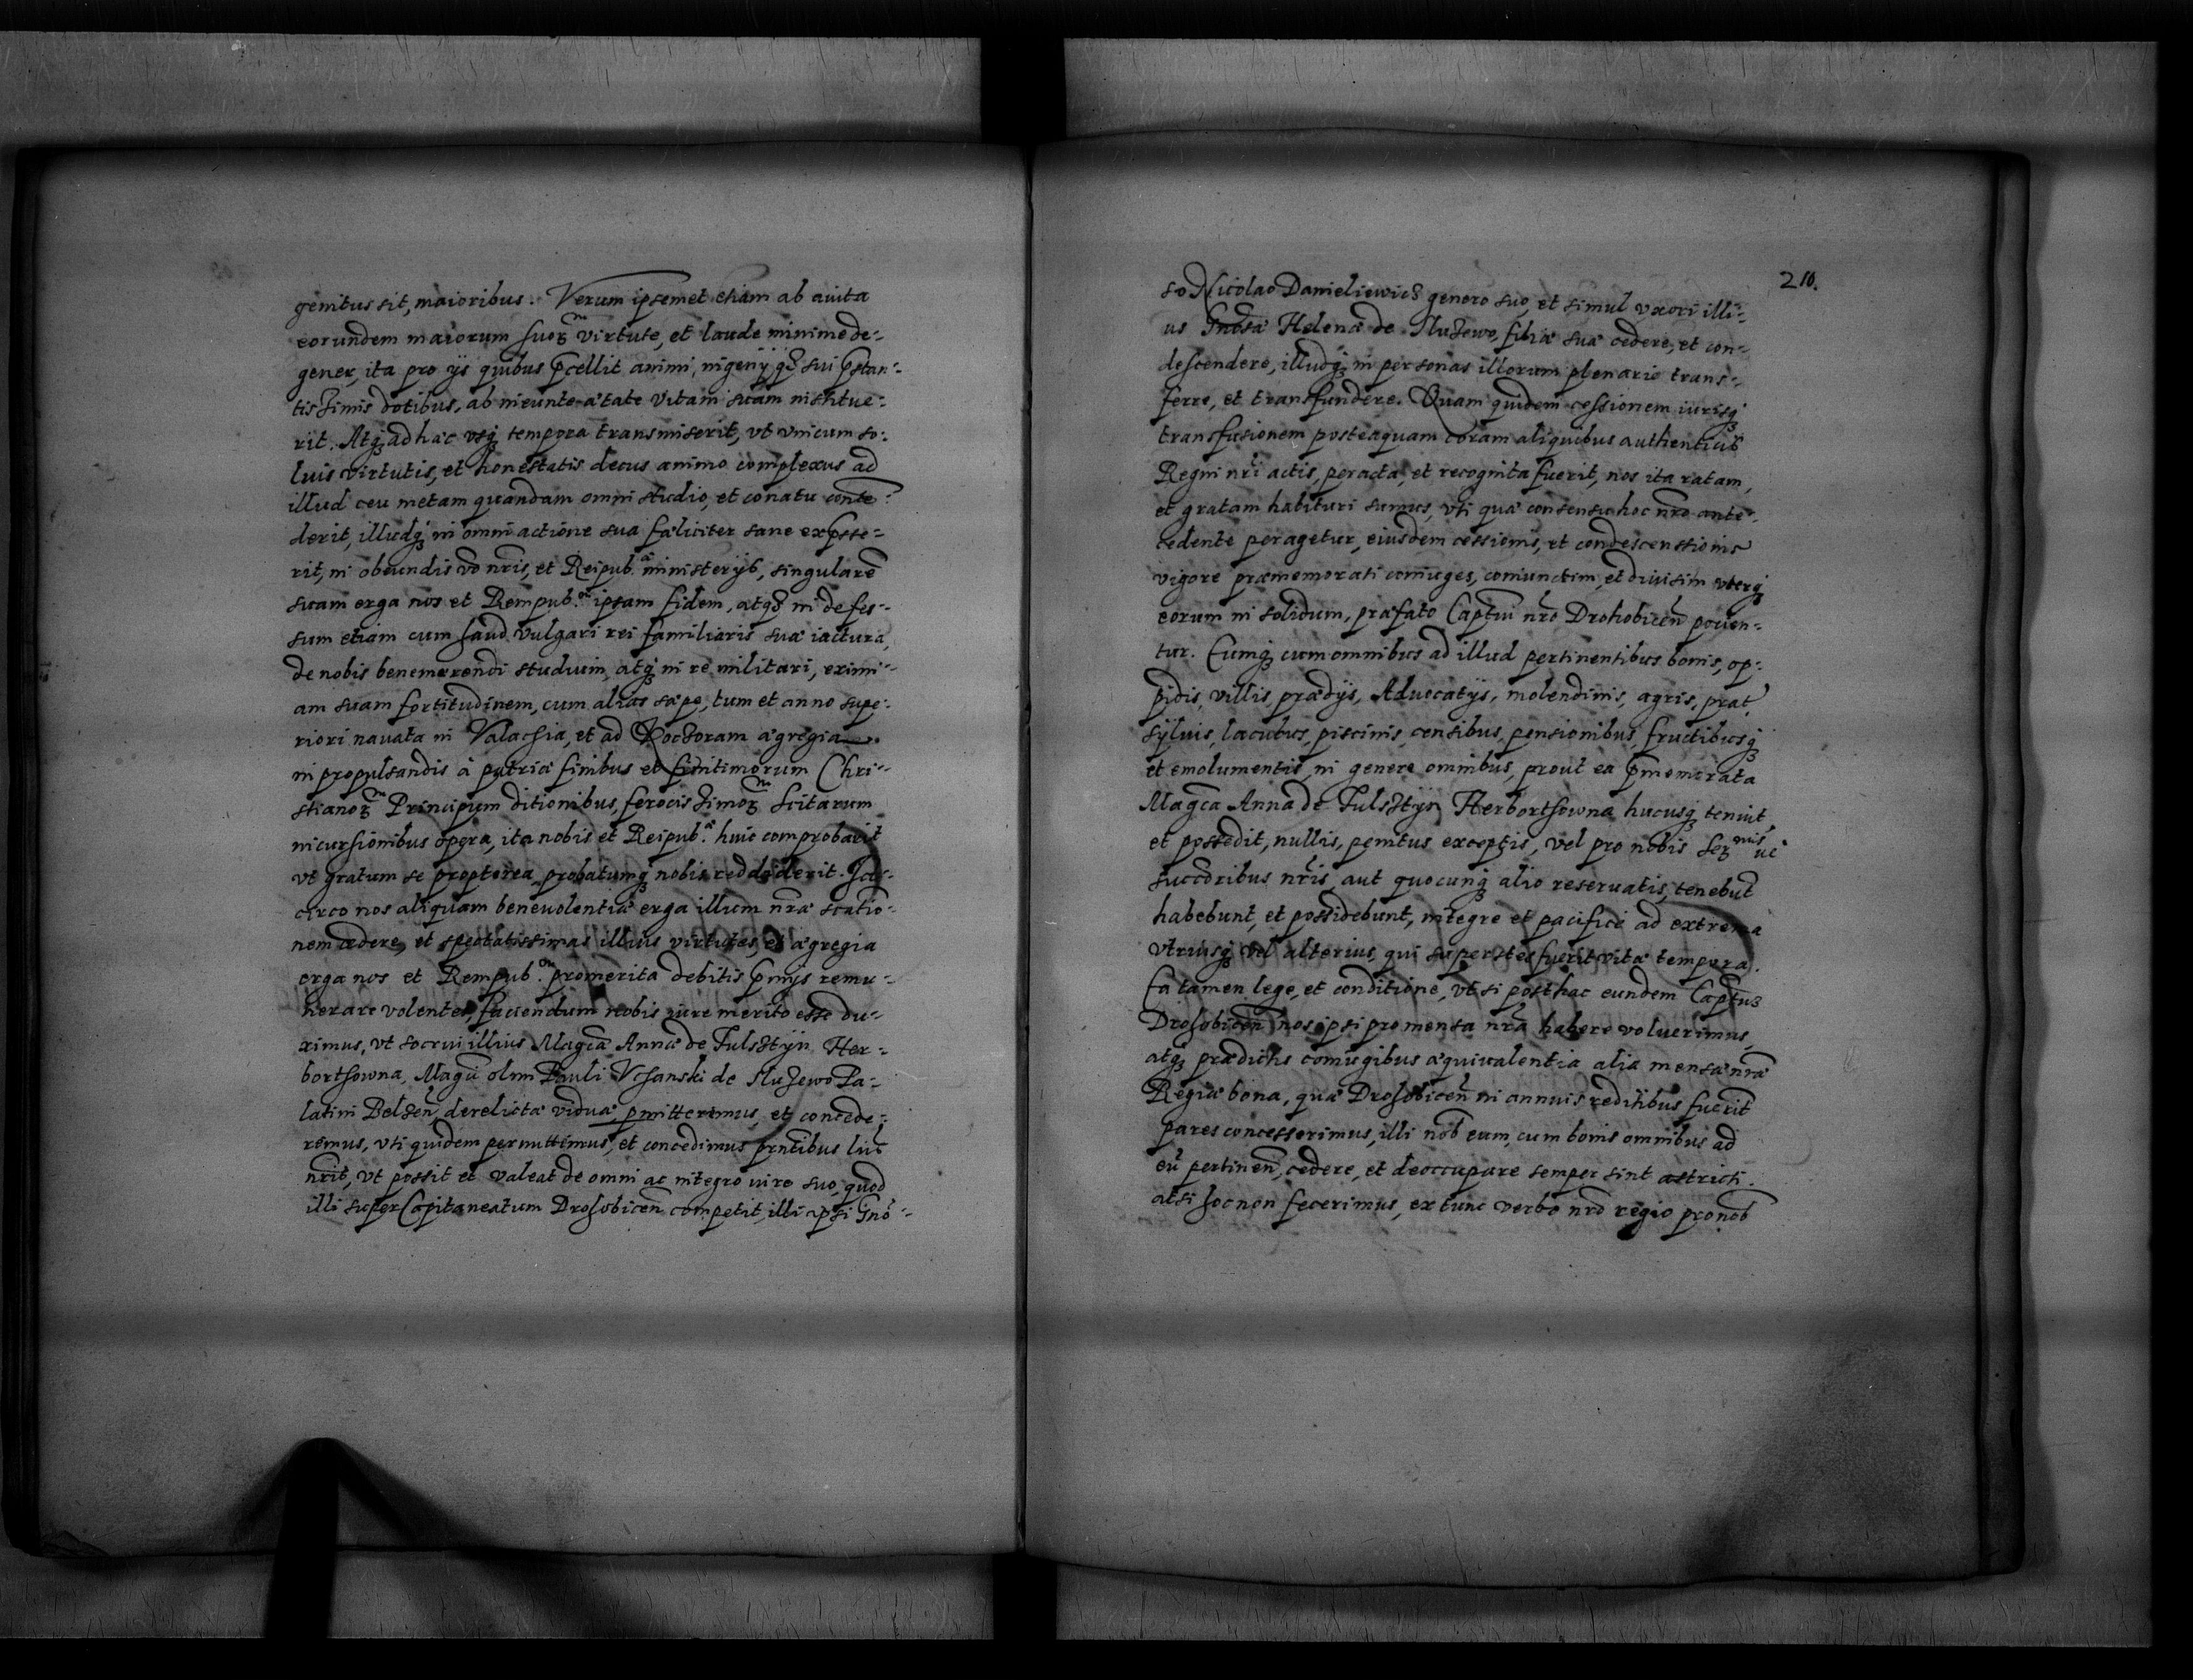 genitus sit, maioribus. Verum ipsemet etiam ab auita
eorundem maiorum suoꝝ virtute, et laude minime de-
gener, ita pro ijs quibus p̄cellit animi, ingenijqꝫ sui p̄stan-
tissimis dotibus, ab ineunte ætate vitam suam institue-
rit. Atqꝫ ad hæc vsqꝫ tempora transmiserit, vt vnicum so-
luis virtutis, et honestatis decus animo complexus ad
illud ceu metam quandam omni studio, et conatu conte-
derit, illudqꝫ in omni actione sua fæliciter sane exp̄sse-
rit, in obeundis vō nr̄is, et Reipub.æ ministerijs, singularē
suam erga nos et Rempub. ipsam fidem, atqꝫ in defes-
sum etiam cum haud vulgari rei familiaris suæ iactura,
de nobis benemerendi studium, atqꝫ in re militari, eximi-
am suam fortitudinem, cum alias sæpe, tum et anno supe-
riori nauata in Valachia, et ad Roczoram ægregia
in propulsandis à patriæ finibus et finitimorum Chri-
stianoꝝ Principum ditionibus, ferocissimoꝝ Scitarum
incursionibus opera, ita nobis et Reipub.æ huic comprobarit
vt gratum se propterea, probatumqꝫ nobis reddiderit. Id-
circo nos aliquam beneuolentiæ erga illum nr̄æ
nem ædere, et spectatissimas illius virtutes, et ægregia
erga nos et Rempub. promerita debitis p̄mijs remu-
nerare volentes, faciendum nobis iure merito esse du-
ximus, vt socrui illius Magcæ Annæ de Fulsztijn Her-
borthowna, Magci olim Pauli Vchanski de Służewo Pa-
latini Belzen̄, derelictæ viduæ p̄mitteremus, et concede-
remus, vti quidem permittimus, et concedimus p̄ntibus lr̄is
nr̄is, vt possit et valeat de omni ac integro iure suo, quod
illi super Capitaneatum Drohobicen̄ competit, illi ipsi Gnō-
210.
so Nicolao Danieliewicz genero suo, et simul vxori illi-
us Gnōsæ Helenæ de Służewo, filiæ suæ cedere, et con-
descendere, illudqꝫ in personas illorum plenarie trans-
ferre, et transfundere. Quam quidem cessionem iurisqꝫ
transfusionem posteaquam coram aliquibus authenticis
Regni nr̄i actis, peracta, et recognita fuerit, nos ita ratam,
et gratam habituri sumus, vti quæ consensu hoc nr̄o ante-
cedente peragetur, eiusdem cessionis, et condescensionis
vigore præmemorati coniuges, coniunctim, et diuisim vterqꝫ
eorum in solidum, præfato Captui nr̄o Drohobicen̄ potien-
tur. Eumqꝫ cum omnibus ad illud pertinentibus bonis, op-
pidis, villis, prædijs, Aduocatijs, molendinis, agris, prat
syluis, lacubus, piscinis, censibus, pensionibus, fructibusqꝫ
et emolumentis, in genere omnibus, prout ea p̄memorata
Magca Anna de Fulsztijn Herborthowna hucusqꝫ tenuit,
et possedit, nullis, penitus exceptis, vel pro nobis Ser.mis ue
succōribus nr̄is, aut quocunqꝫ alio reseruatis, tenebūt
habebunt, et possidebunt, integre et pacifice ad extrema
vtriusqꝫ vel alterius, qui superstes fuerit vitæ tempora.
Ea tamen lege, et conditione, vt si posthac eundem Captus
Drohobicen̄ nos ipsi pro mensa nr̄a habere voluerimus,
atqꝫ prædictis coniugibus æquiualentia alia mensæ nr̄æ
Regiæ bona, quæ Drohobicen̄ in annuis reditibus fuerint
pares concesserimus, illi nob̄ eum, cum bonis omnibus ad
eū pertinen̄, cedere, et deoccupare semper sint astricti.
at si hoc non fecerimus, ex tunc verbo nr̄o regio pro nob̄